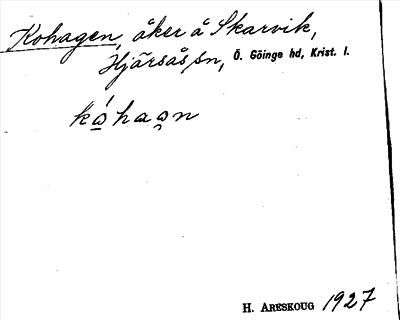 Kohagen, åker å Skarvik,
Hjärsås sn, Ö. Göinge hd, Krist. l.
H. ARESKOUG 1927